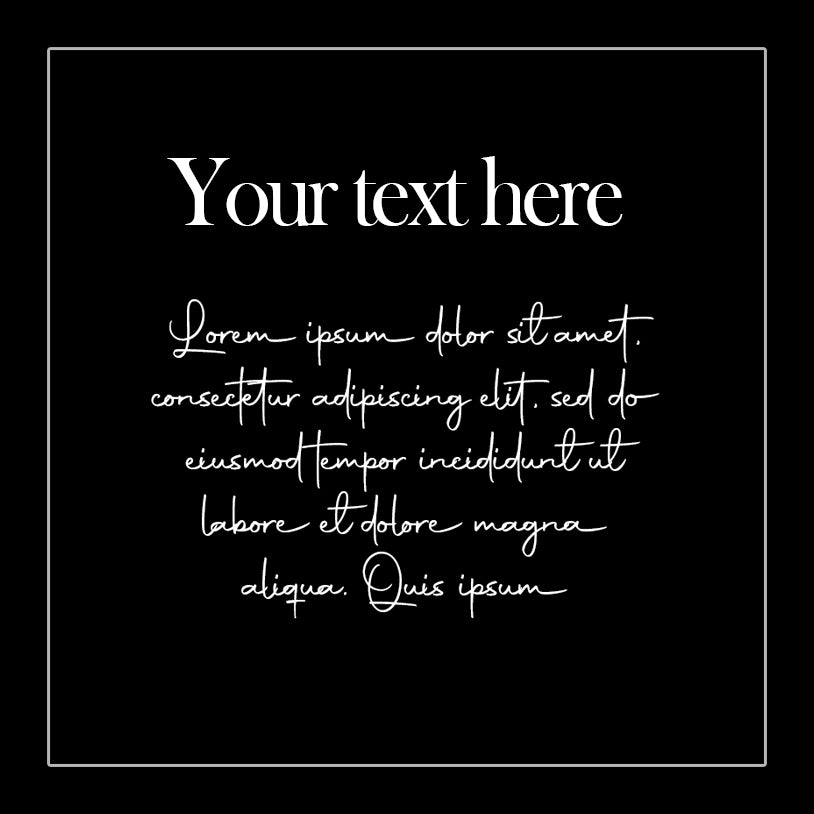 Your text here
Lorem ipsum dolor sit amet,
consectetur adipiscing elit, sed do
eiusmod tempor incididunt ut
labore et dolore magna
aliqua. Quis ipsum